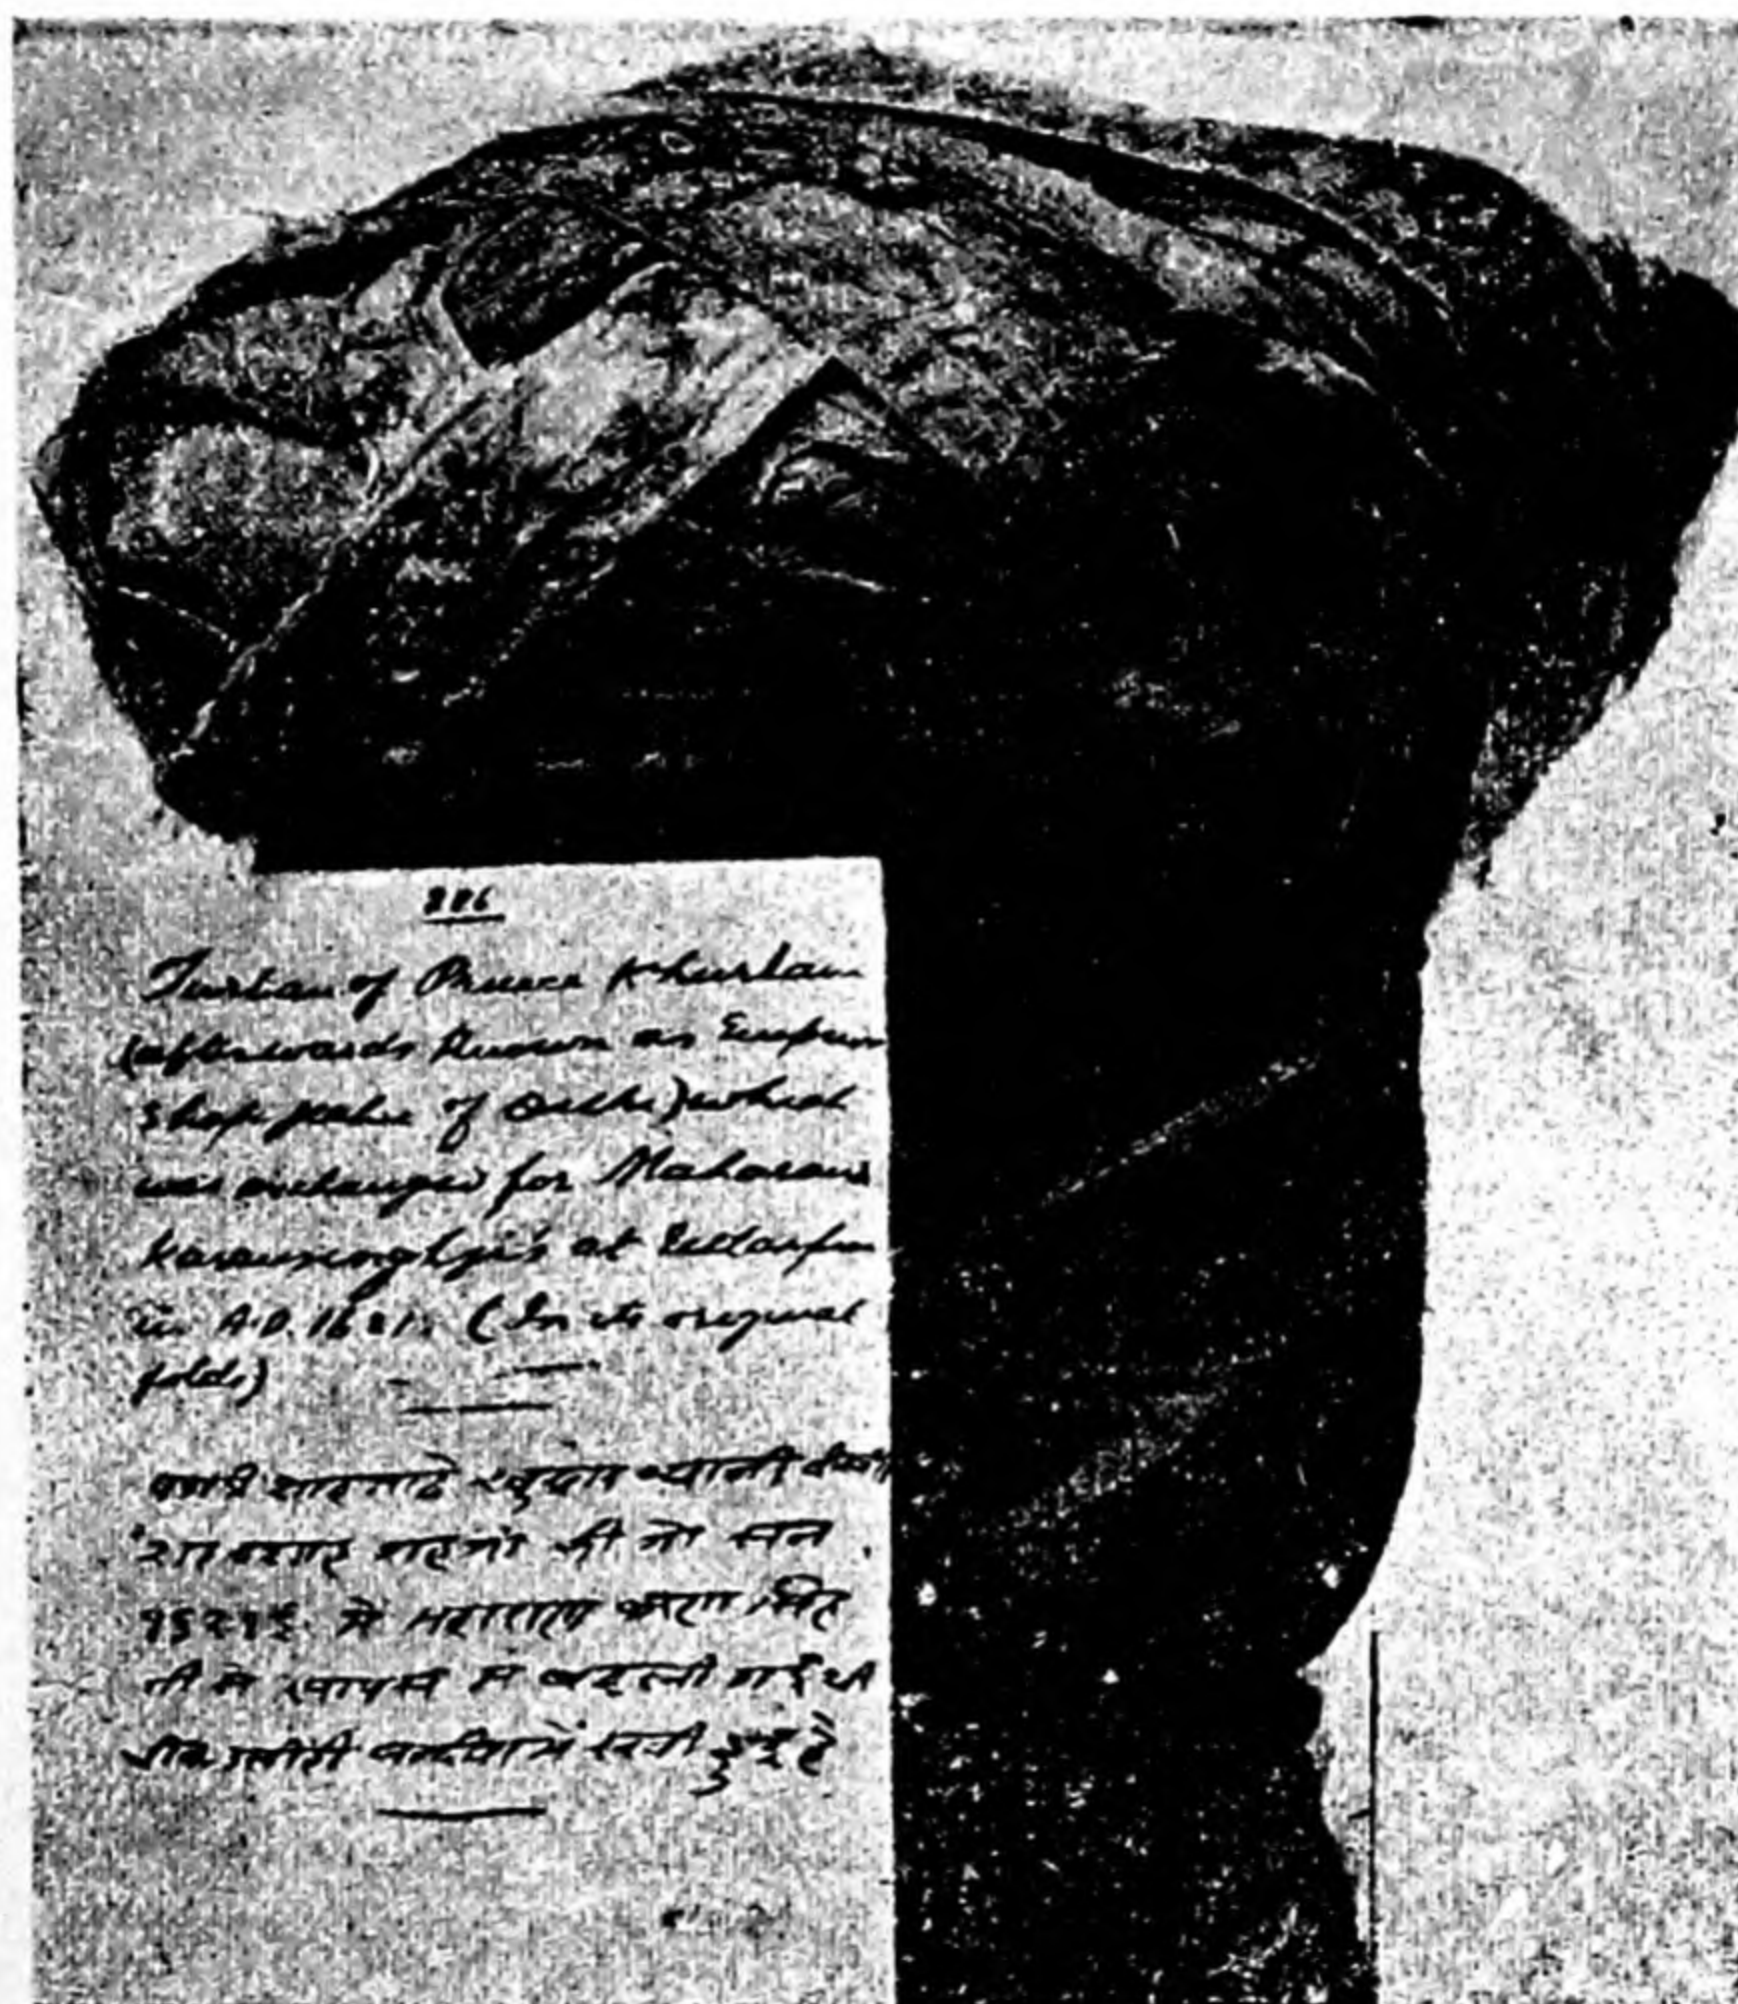 886
Turban of Prince Khurram
(afterwards known as Emperor
Shah Jahan of Delhi) which
was exchanged for Maharana
Karansinghji's at Udaipur
in A.D. 1621. (In its original
folds)
पगड़ी शाहजादे खुर्रम यानी
शाहजहां की जो सन
१६२१ई. में महाराणा करण सिंह
जी से आपस में बदली गई थी
में रखी हुई है